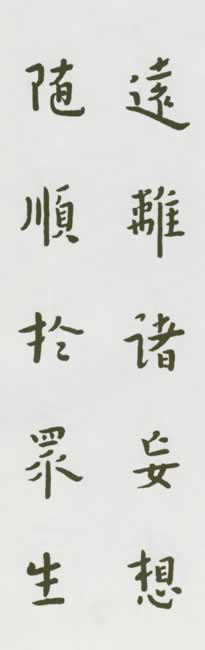 遠離諸妄想
随順於眾生